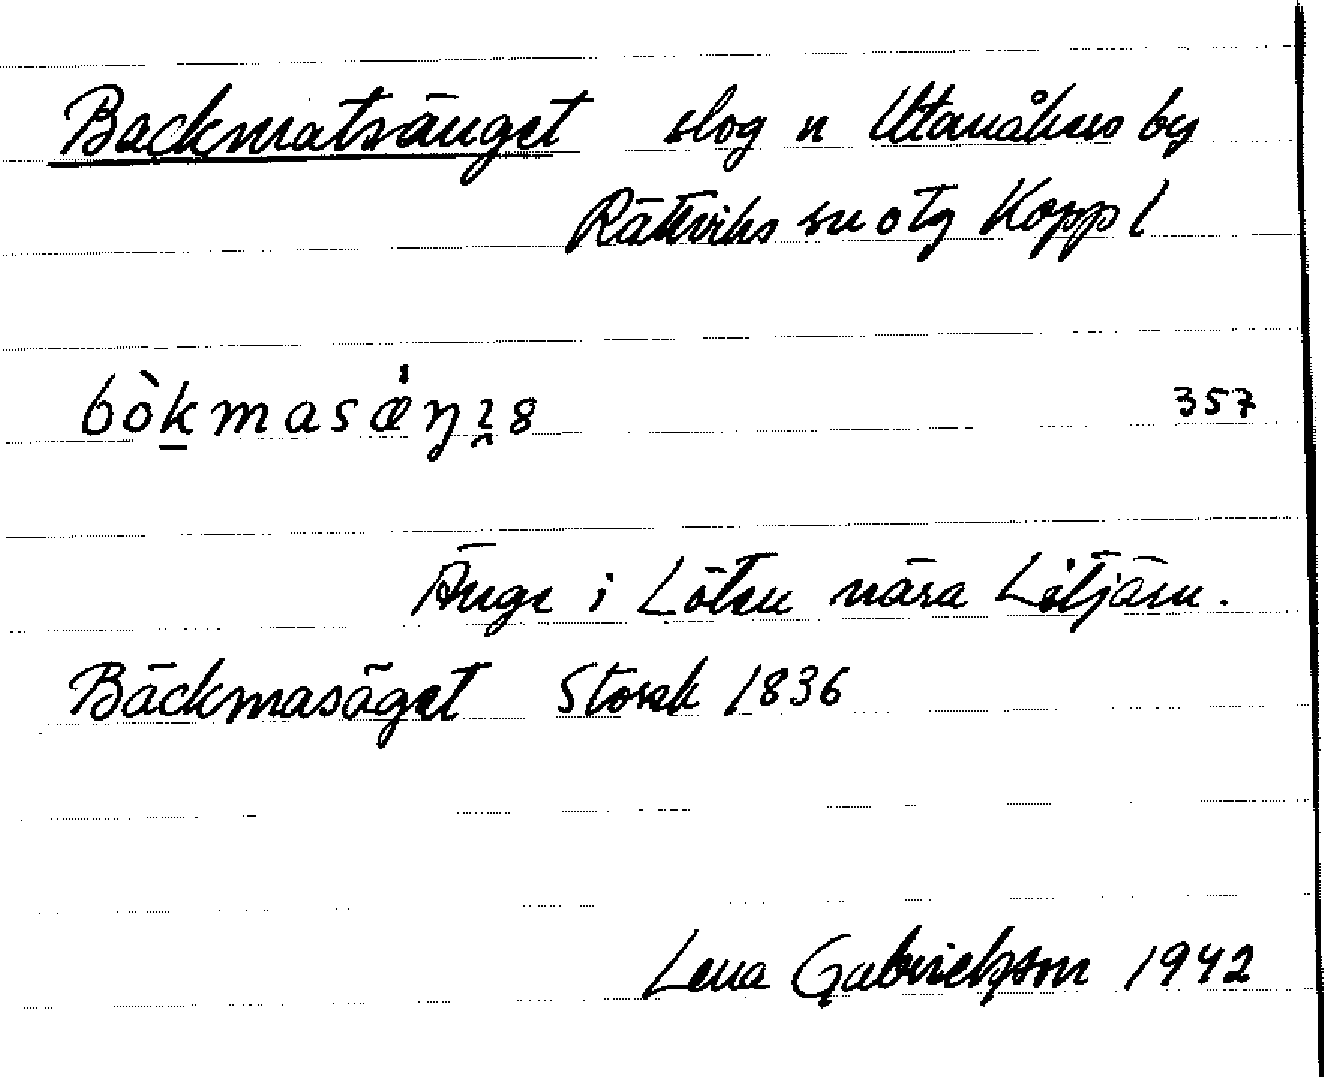 Backmatsänget slog n Utanåkers by
Rättviks sn o tg Kopp l
bòk̲masǽŋɪ̯8 357
Änge i Löten nära Litjärn.
Bäckmasäget Storsk 1836
Lena Gabrielsson 1942